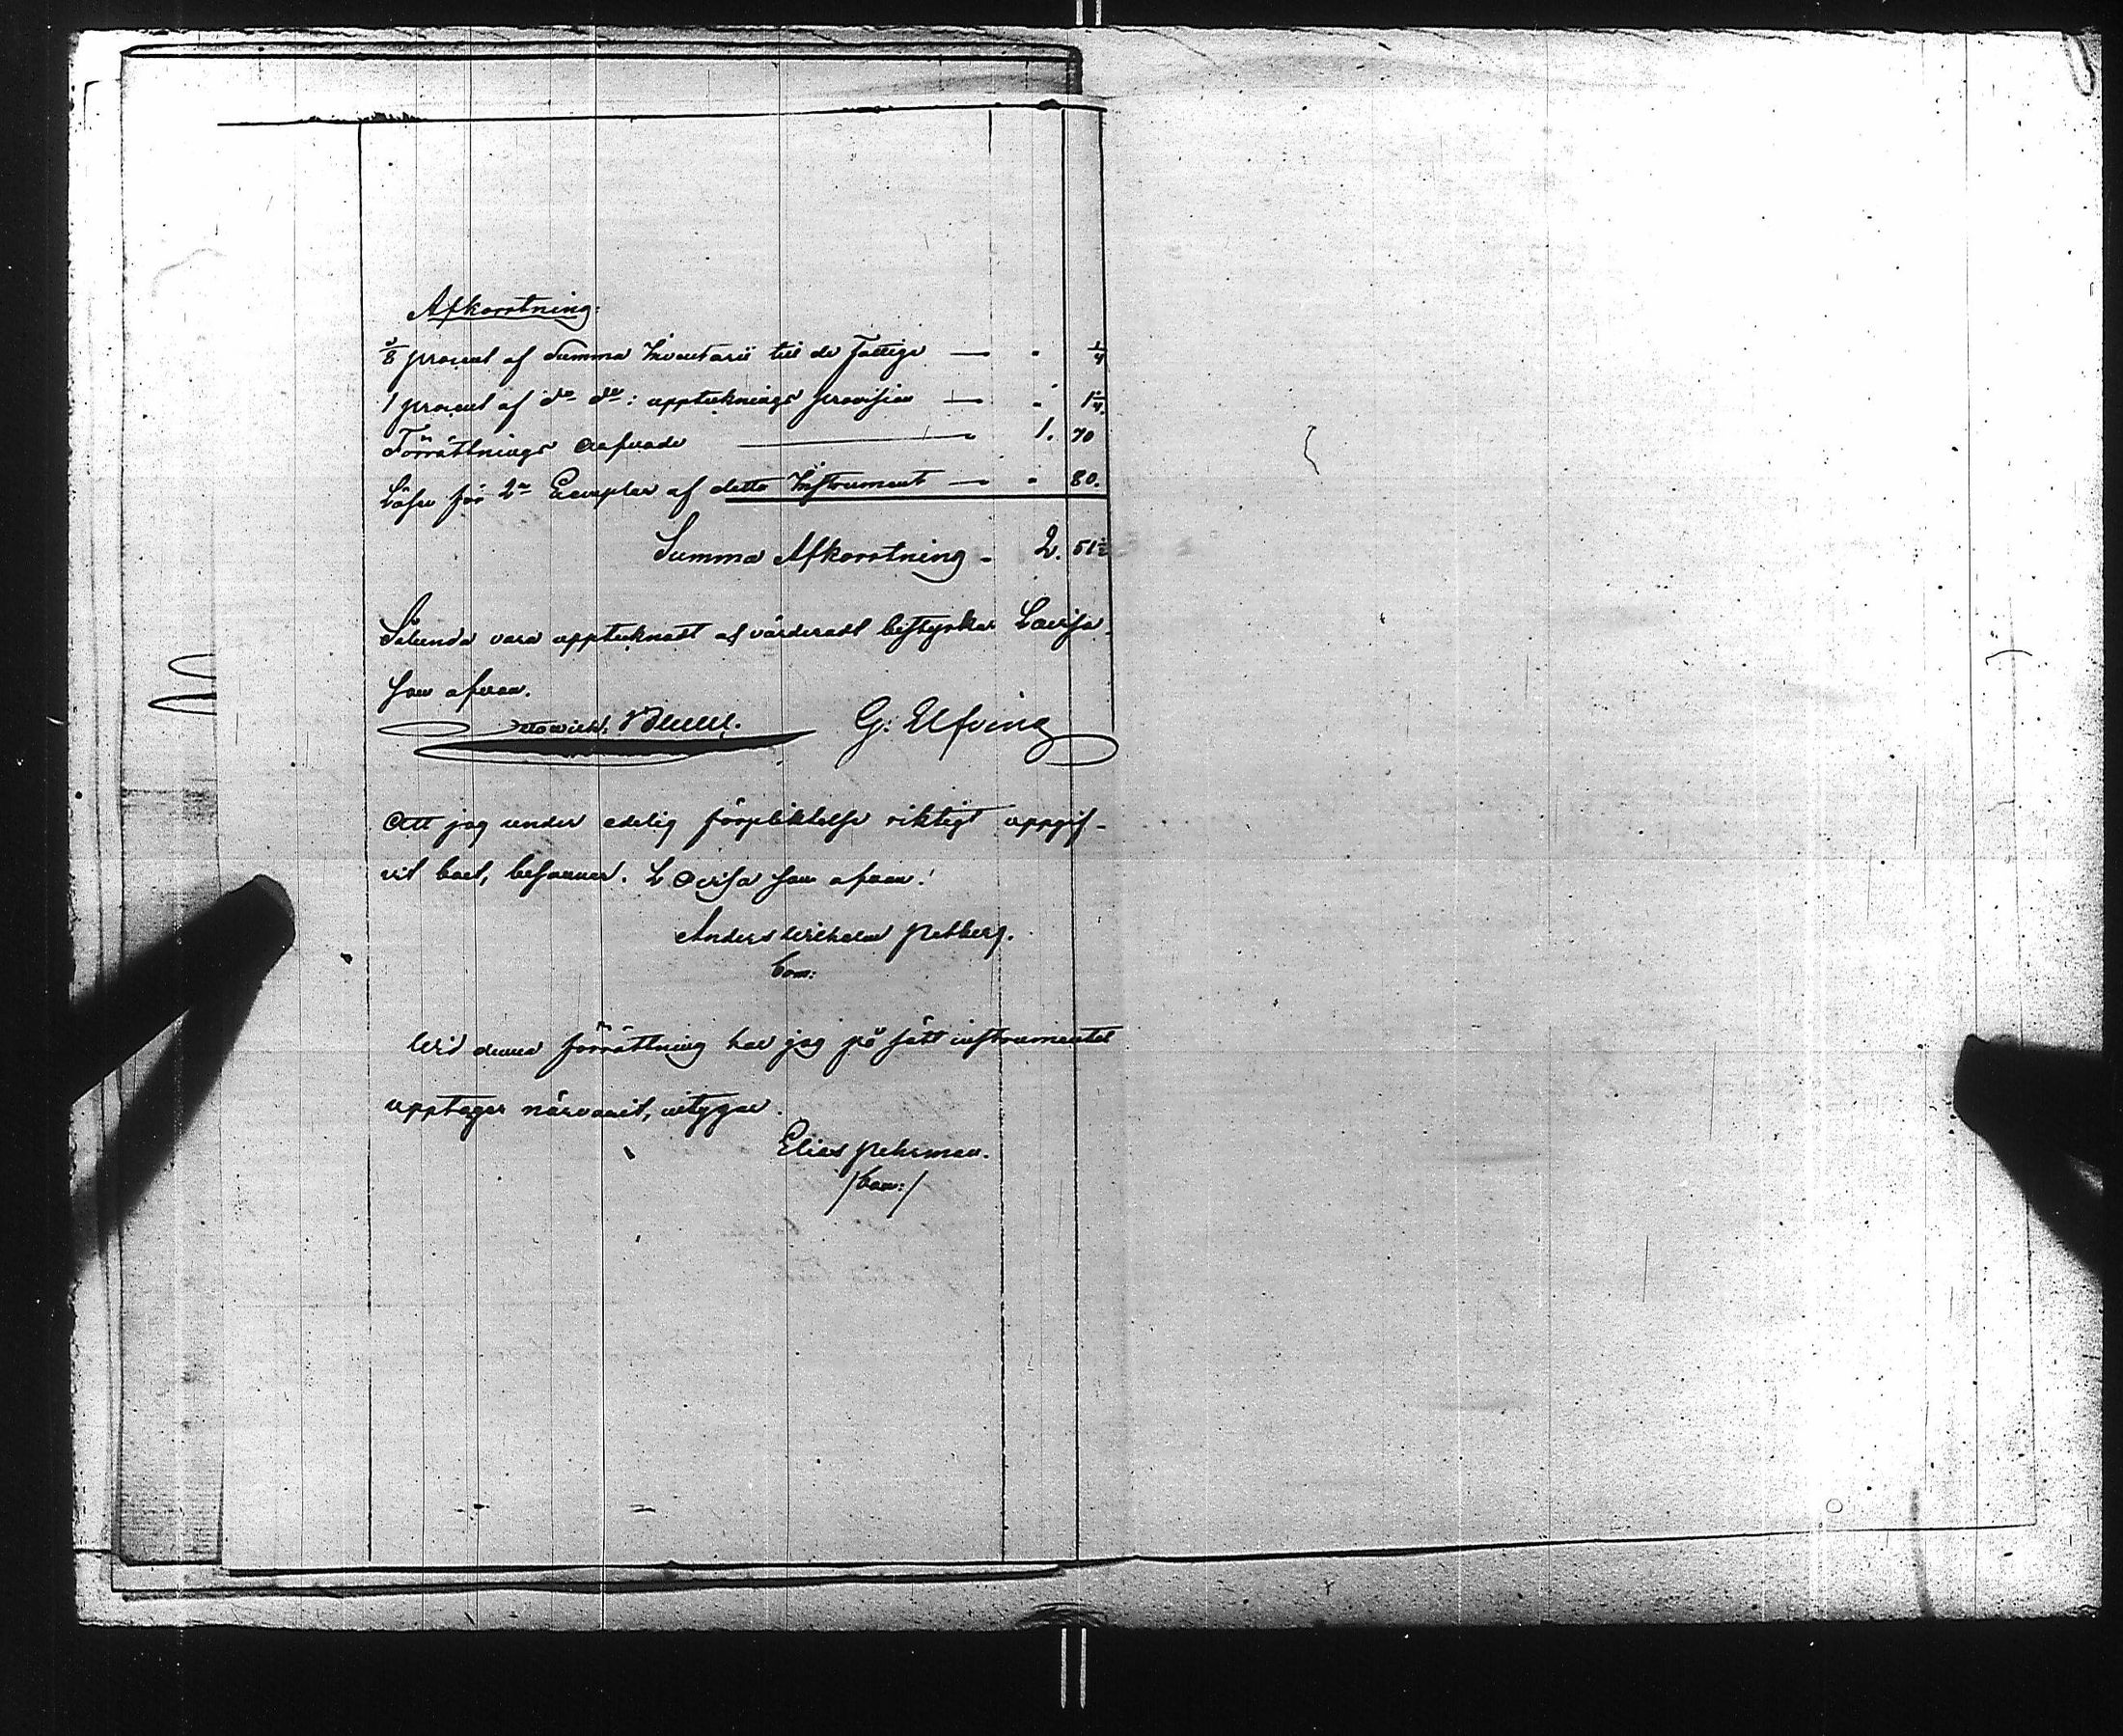 Afkorrtning:
1/8 procent af Summa Inventarii till de Fattige — " 1/4
1 procent af do do: uppteknings provision — " 1 1/4.
Förrättnings arfvode — 1. 70
Lösen för 2ne Exemplar af detta Instrument — " 80.
Summa Afkorrtning - 2. 51 1/2
Sålunda vara upptecknadt af värderadt bestyrker Lovisa
som ofvan.
G: Elfving
Att jag under edelig förpliktelse riktigt uppgif-
vit boet, besannar. Lovisa som ofvan!
Anders Wilhelm Petberg.
bom:
Wid denna förrättning har jag på sätt instrumentet
upptager närvarit, vitygar.
Elias Pehrman.
/bom:/